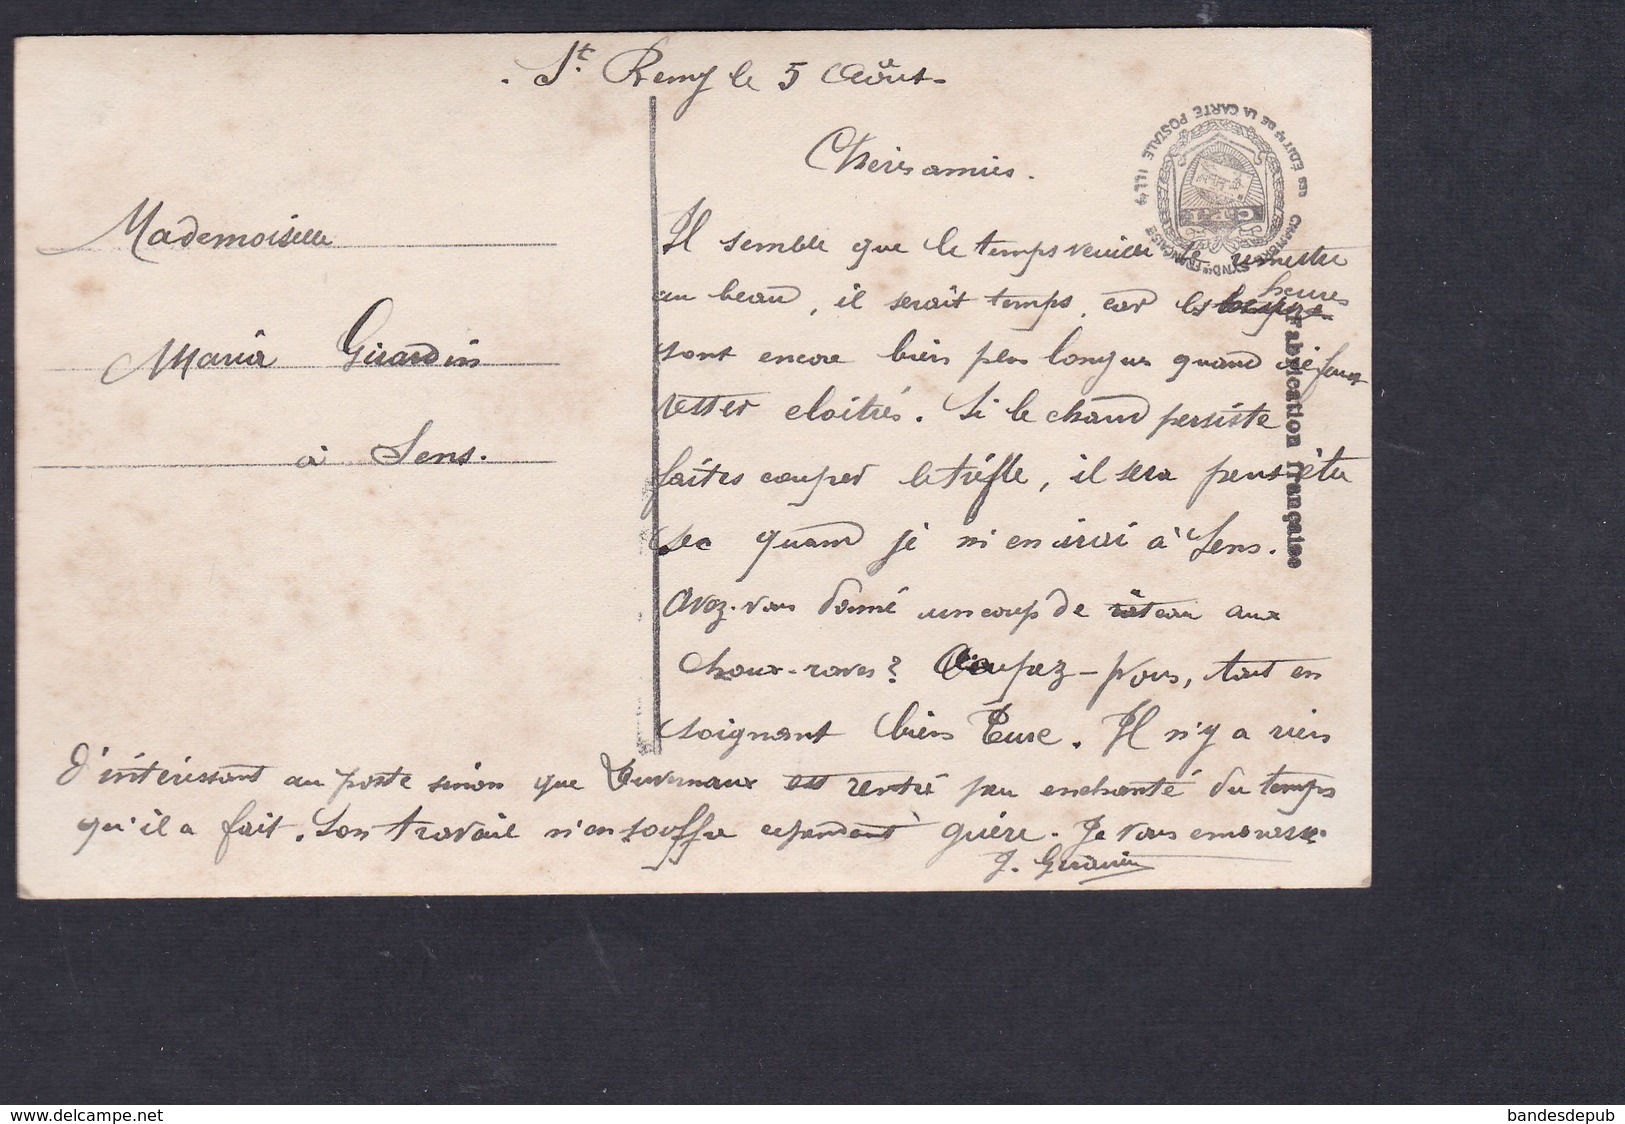 . St. Remy le 5 Août-
Mademoiselle
Maria Girardin
à Sens.
Chères amies.
Il semble que le temps veuille se remettre
au beau, il serait temps, car les heures
sont encore bien plus longues quand il faut
rester cloitrés. Si le chaud persiste
faites couper le trèfle, il sera peut-être
sec quand je m'en irai à Sens.
Avez-vous donné un coup de râteau aux
choux-raves? Occupez-vous, tout en
soignant bien . Il n'y a rien
d'intéressant au poste sinon que est rentré peu enchanté du temps
qu'il a fait. Son travail n'en souffre cependant guère. Je vous embrasse.
J.
SYND. FRANÇAISE DES ÉDIT. DE LA CARTE POSTALE ILL.
Fabrication française
www.delcampe.net
bandesdepub